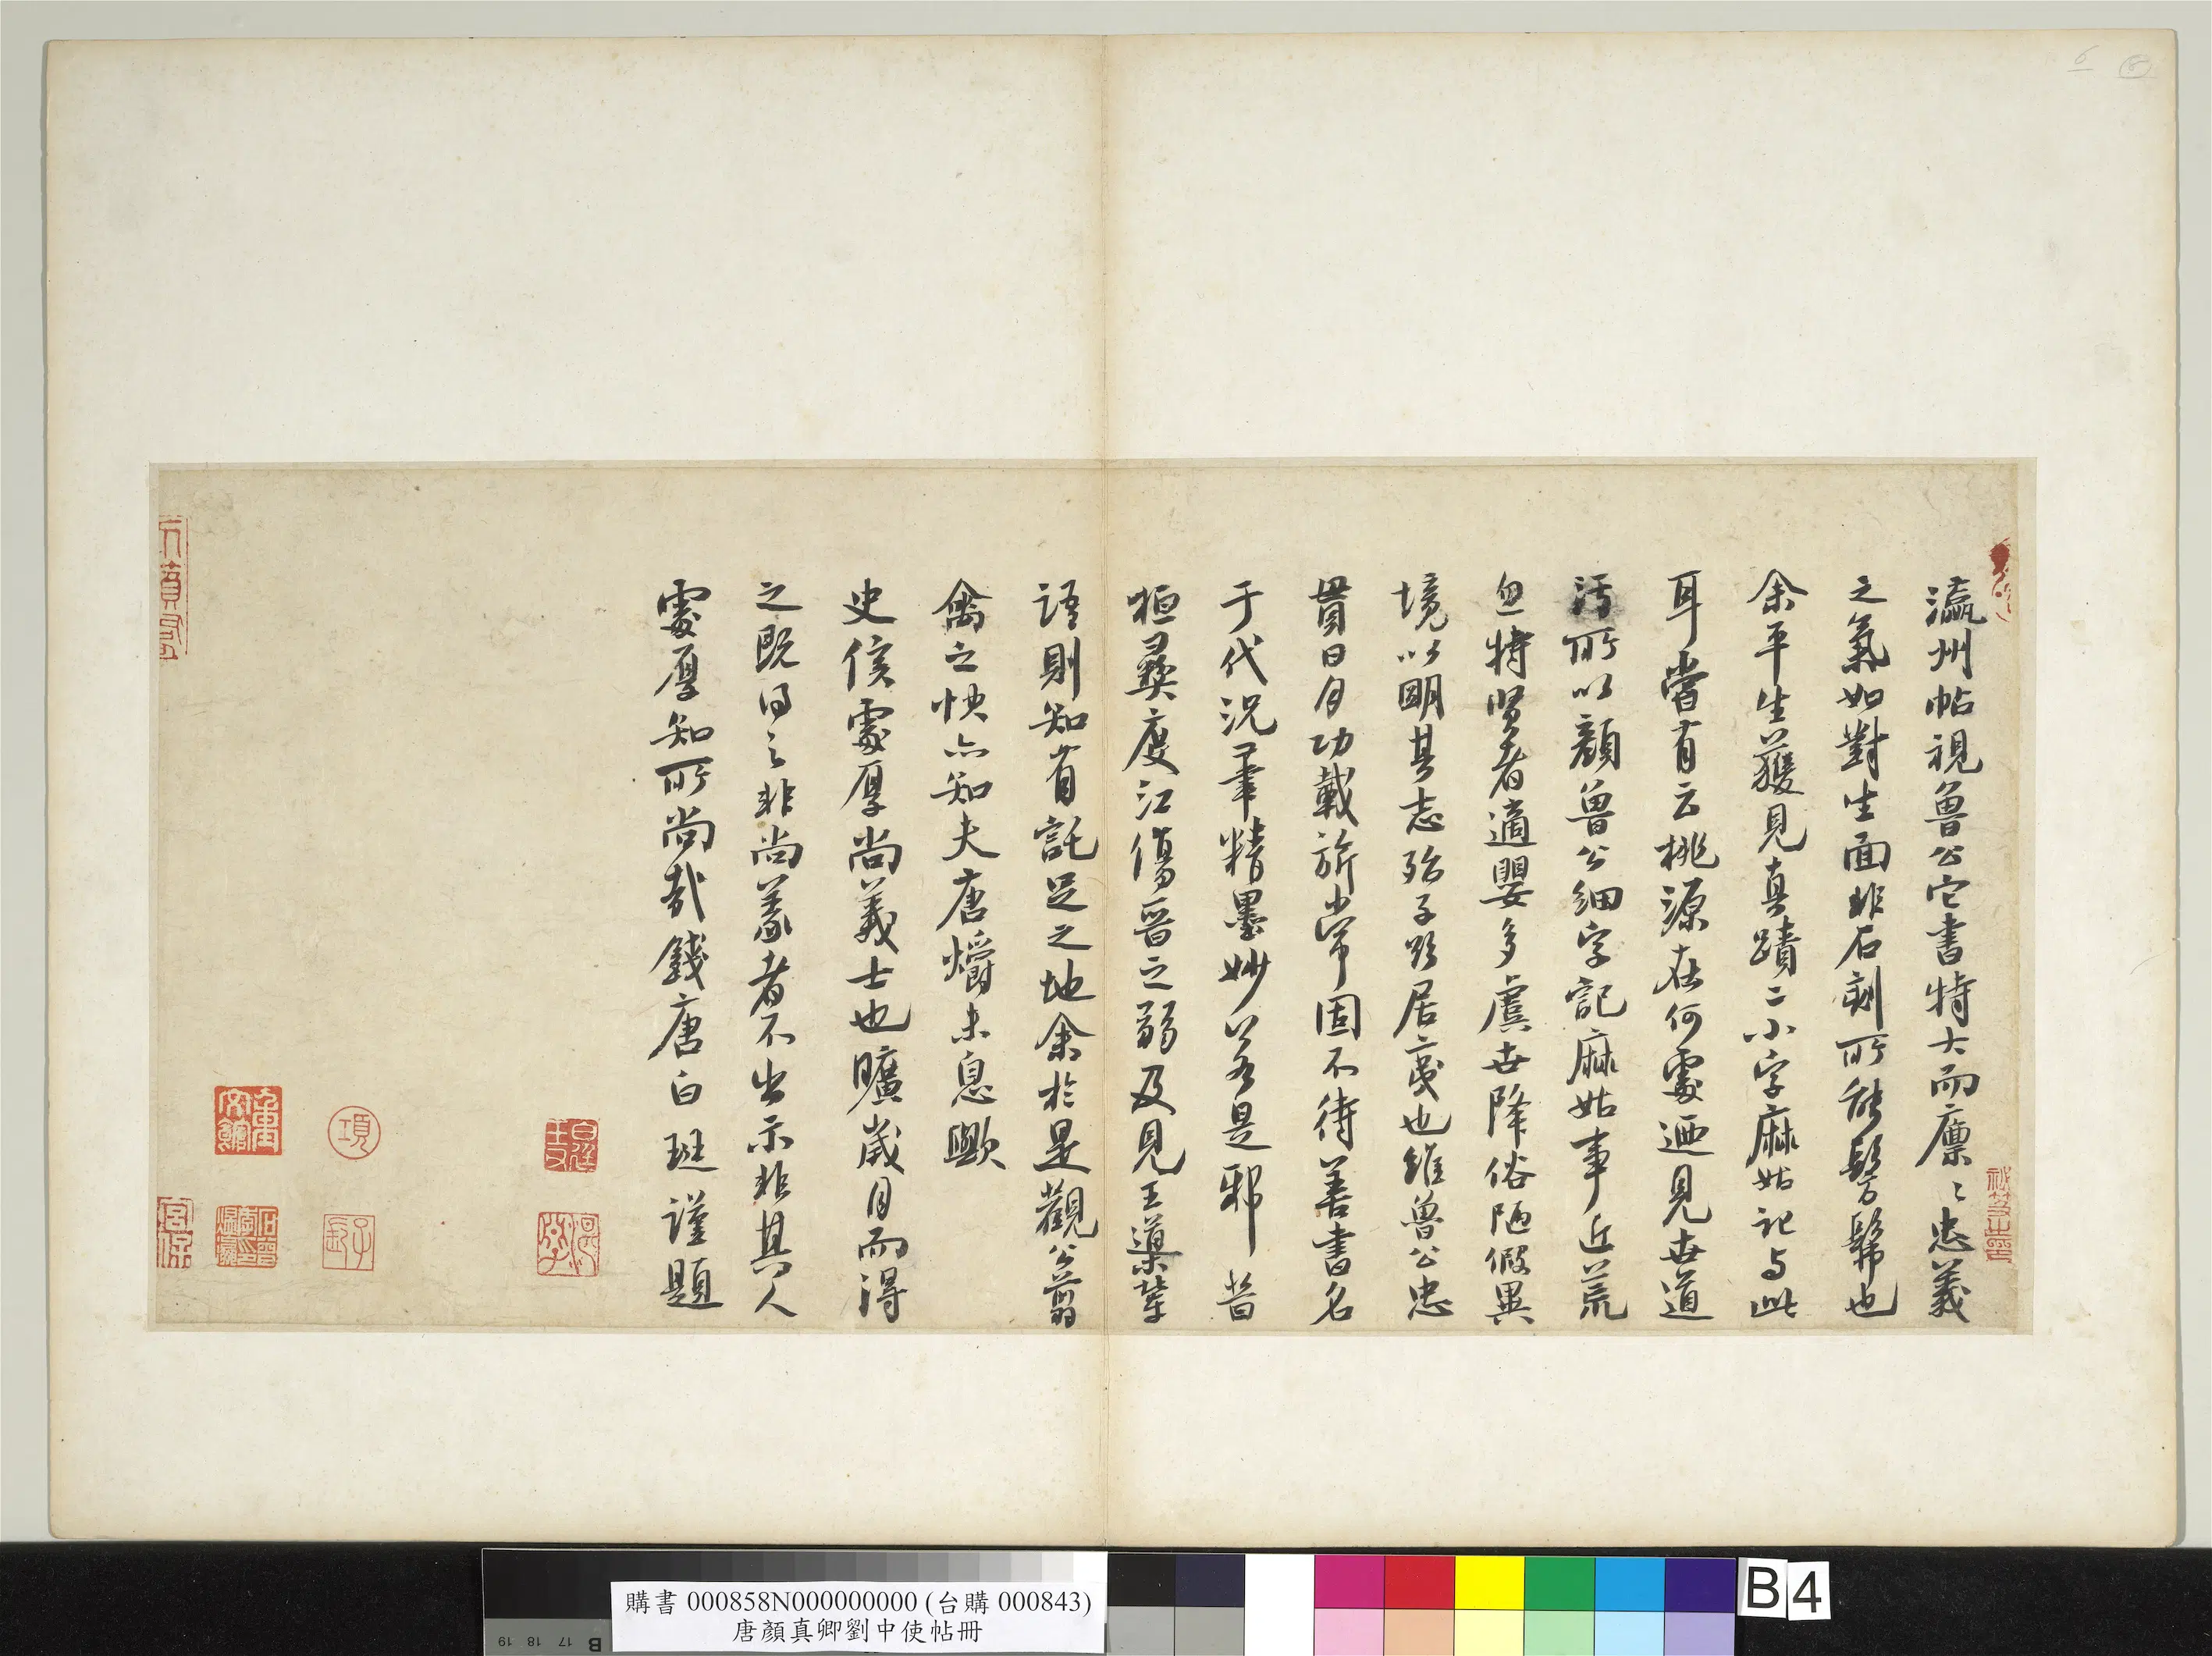 瀛州帖視魯公它書特大而廩〻忠義
之氣如對生面非石刻所能髣髴也
余平生獲見真蹟二小字麻姑記与此
耳嘗有云桃源在何處迺見世道
汚所以顏魯公細字記麻姑事近荒
忽特賢者適嬰多虞世降俗陋假異
境以明其志殆子欲居夷也雖魯公忠
貫日月功載旂常固不待善書名
于代況筆精墨妙若是邪昔
桓彝度江傷晉之弱及見王導輩
語則知有託足之地余於是觀公翦
禽之快亦知夫唐爝未息歟
史侯處厚尚義士也曠歲月而得
之既得之非尚義者不出示非其人
處厚知所尚哉錢唐白珽謹題
項
購書 000858N000000000 (台購 000843)
唐顏真卿劉中使帖冊
B 17 18 19
B 4